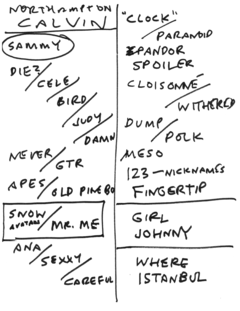 NORTHAMPTON
CALVIN
SAMMY
DIE?/
CELE/
BIRD/
JUDY/
DAMN
NEVER/
GTR
APES/
OLD PINE BO
SNOW
AVATARS/MR. ME
ANA/
SEXXY/
CAREFUL
"CLOCK"/
PARANOID
XPANDOR
SPOILER
CLOISONNÉ/
WITHERED
DUMP/
POLK
MESO
123—NICKNAMES
FINGERTIP
GIRL
JOHNNY
WHERE
ISTANBUL